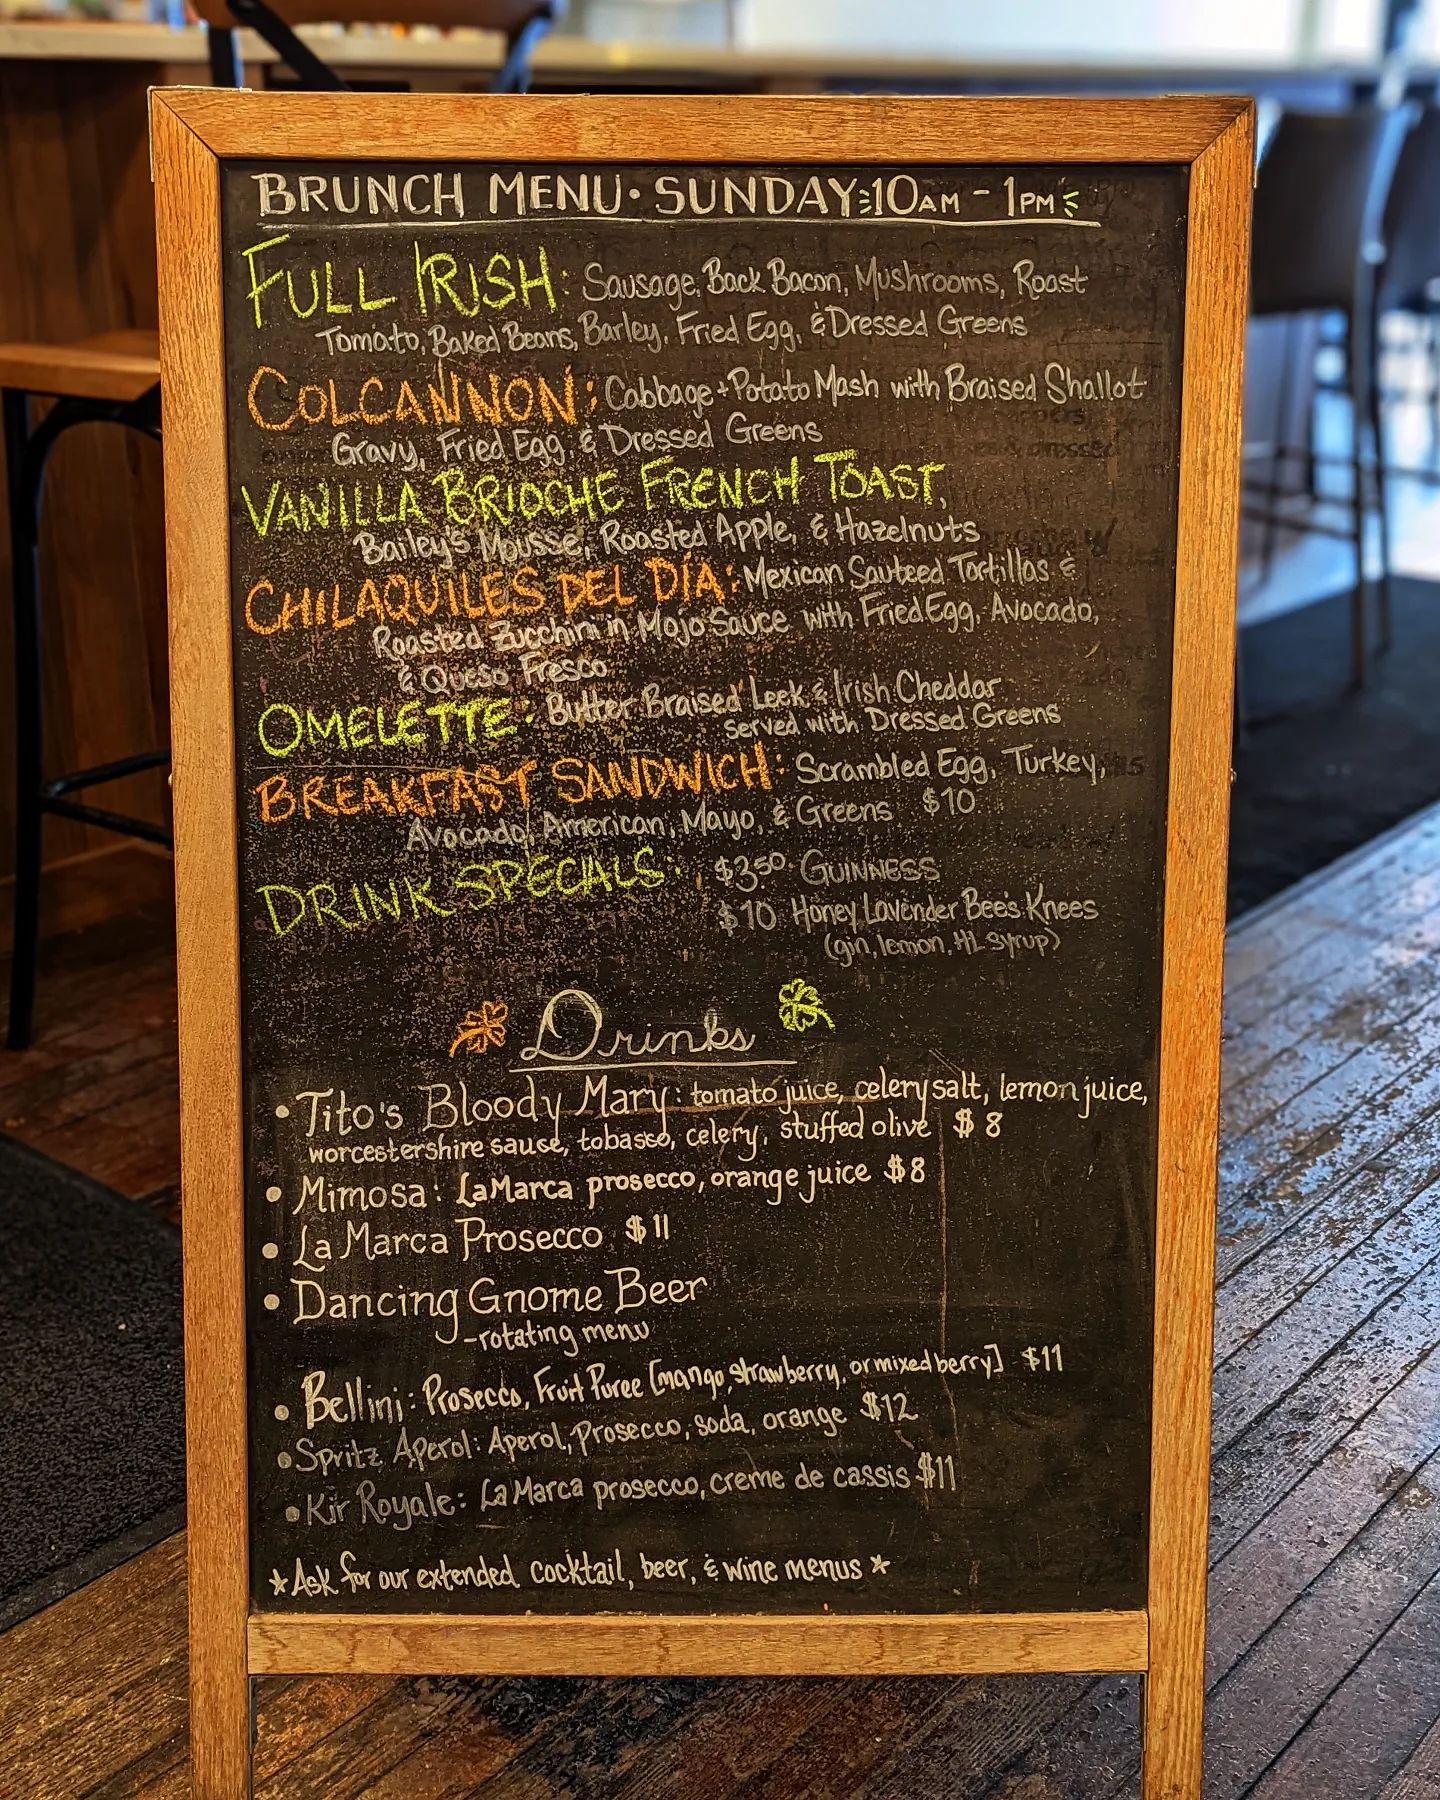 BRUNCH MENU · SUNDAY 10AM - 1PM
FULL IRISH: Sausage, Back Bacon, Mushrooms, Roast
Tomato, Baked Beans, Barley, Fried Egg, & Dressed Greens
COLCANNON: Cabbage + Potato Mash with Braised Shallot
Gravy, Fried Egg, & Dressed Greens
VANILLA BRIOCHE FRENCH TOAST,
Bailey's Mousse, Roasted Apple, & Hazelnuts
CHILAQUILES DEL DÍA: Mexican Sauteed Tortillas &
Roasted Zucchini in Mojo Sauce with Fried Egg, Avocado,
& Queso Fresco
OMELETTE: Butter Braised Leek & Irish Cheddar
served with Dressed Greens
BREAKFAST SANDWICH: Scrambled Egg, Turkey,
Avocado, American, Mayo, & Greens $10
DRINK SPECIALS: $3.50 GUINNESS
$10 Honey Lavender Bee's Knees
(gin, lemon, HL syrup)
Drinks
• Tito's Bloody Mary: tomato juice, celery salt, lemon juice,
worcestershire sauce, tobasso, celery, stuffed olive $8
• Mimosa: LaMarca prosecco, orange juice $8
• La Marca Prosecco $11
• Dancing Gnome Beer
- rotating menu
• Bellini: Prosecco, Fruit Puree [mango, strawberry, or mixed berry] $11
• Spritz Aperol: Aperol, prosecco, soda, orange $12
• Kir Royale: La Marca prosecco, creme de cassis $11
* Ask for our extended cocktail, beer, & wine menus *